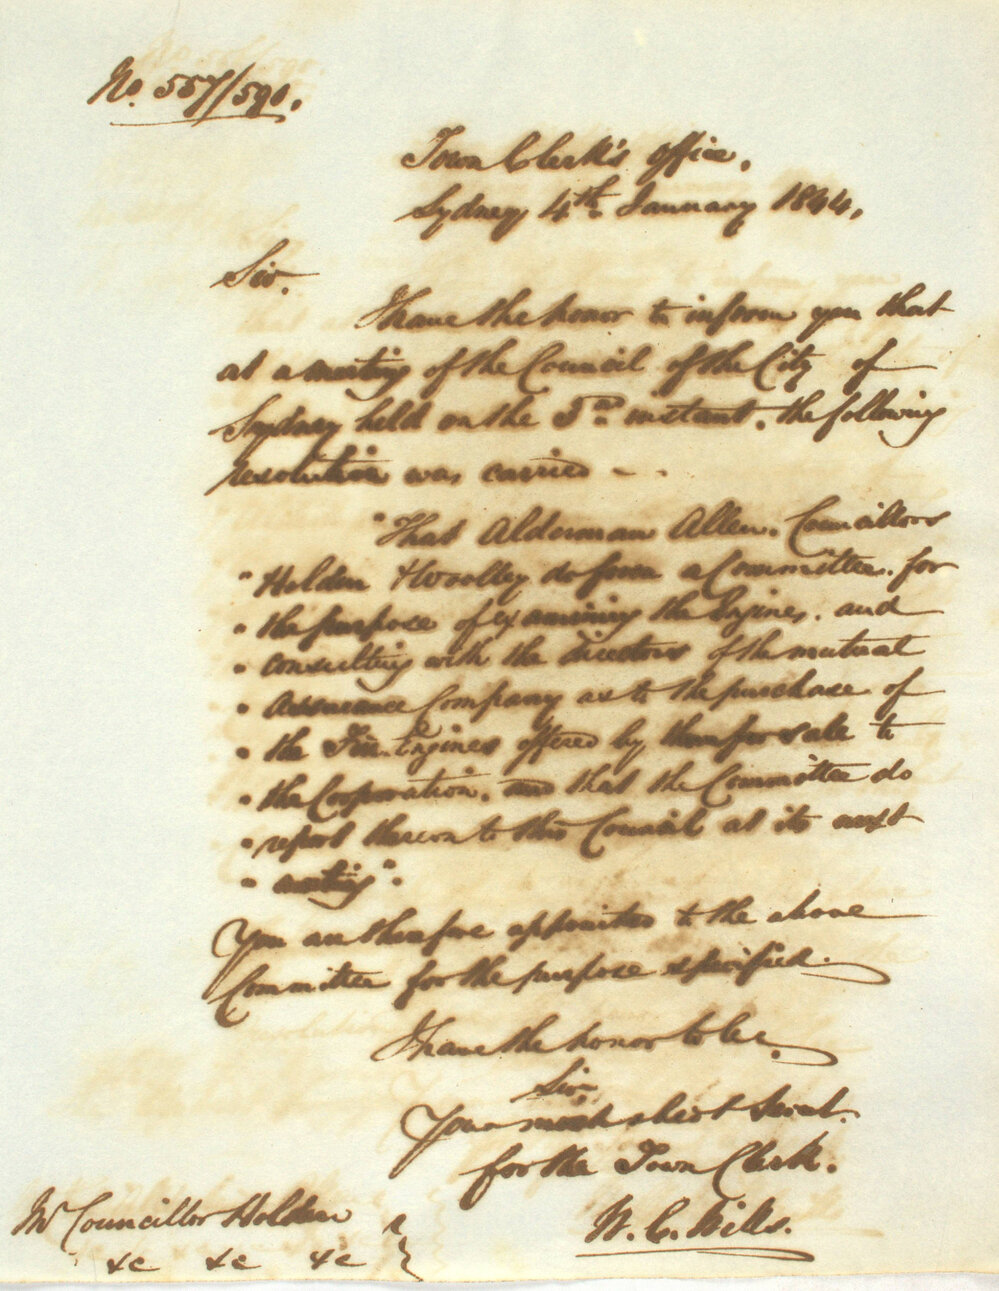 No. 557/590.
Town Clerk's Office.
Sydney 4th January 1844.
Sir.
I have the honor to inform you that
at a meeting of the Council of the City of
Sydney held on the 3rd instant, the following
resolution was carried —
"That Alderman Allen. Councillors
" Holden & Woolley do form a Committee. for
" the purpose of examining the Engines, and
" consulting with the Directors of the mutual
" Assurance Company as to the purchase of
" the Fire Engines offered by them for sale to
" the Corporation, and that the Committee do
" report thereon to this Council at its next
" meeting".
You are therefore appointed to the above
Committee for the purpose specified.
I have the honor to be.
Sir
Your most obedt Servt.
for the Town Clerk.
W. C. Wills.
Mr Councillor Holden
&c &c &c